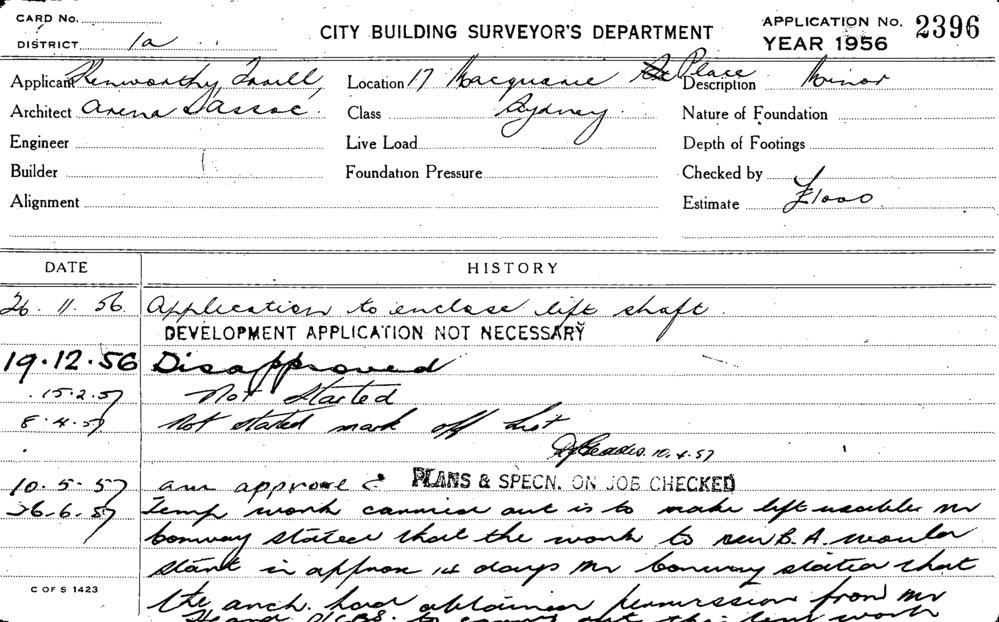 CARD No.
DISTRICT 1a
CITY BUILDING SURVEYOR'S DEPARTMENT
APPLICATION No. 2396
YEAR 1956
Applicant Kenworthy
Architect arena & assoc.
Engineer
Builder
Alignment
Location 17 Macquarie Place
Class Sydney
Live Load
Foundation Pressure
Description Minor
Nature of Foundation
Depth of Footings
Checked by
Estimate £1000
DATE HISTORY
26. 11. 56 Application to enclose lift shaft.
DEVELOPMENT APPLICATION NOT NECESSARY
19.12.56 Disapproved
15.2.57 Not Started
8.4.57 Not stated mark off list
10.4.57
10.5.57 am approved PLANS & SPECN. ON JOB CHECKED
26.6.57 Temp work carried out is to make lift useable Mr
Conway stated that the work to new B.A. would
start in approx 14 days Mr Conway stated that
the arch. had obtained permission from Mr
to carry out the temp work
C OF S 1423